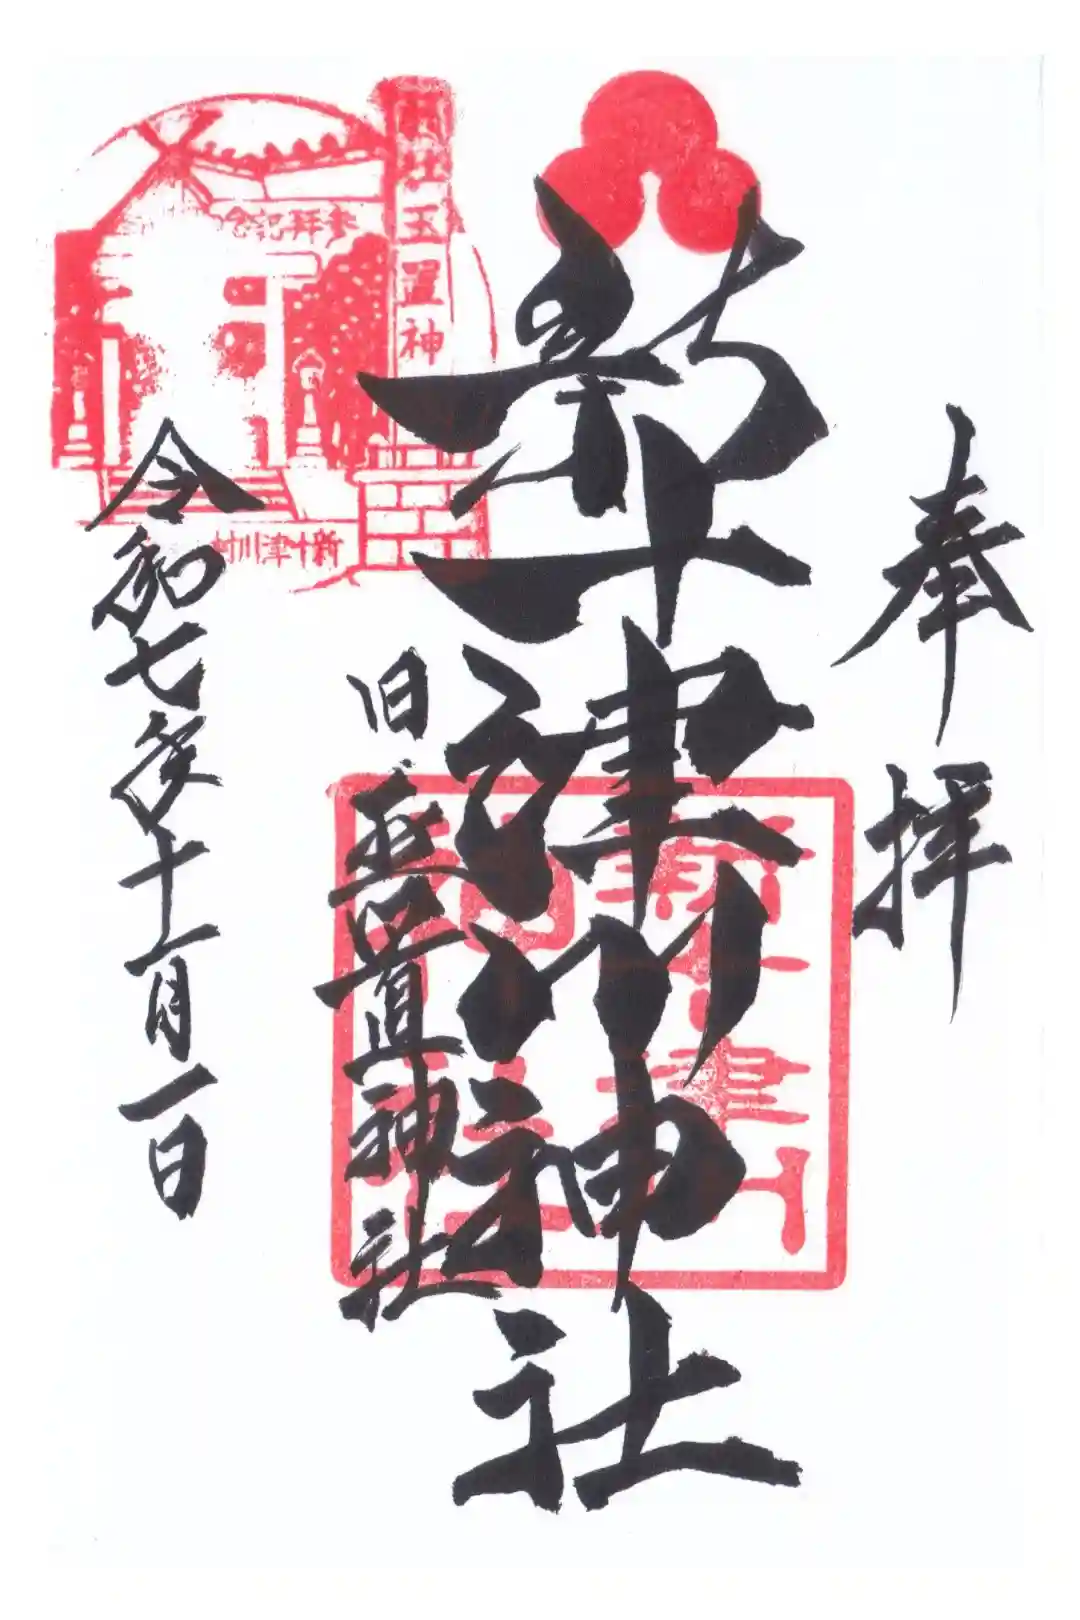 奉拝
新十津川神社
旧玉置神社
令和七年十一月一日
参拝記念
郷社玉置神
新十津川村
新十津川